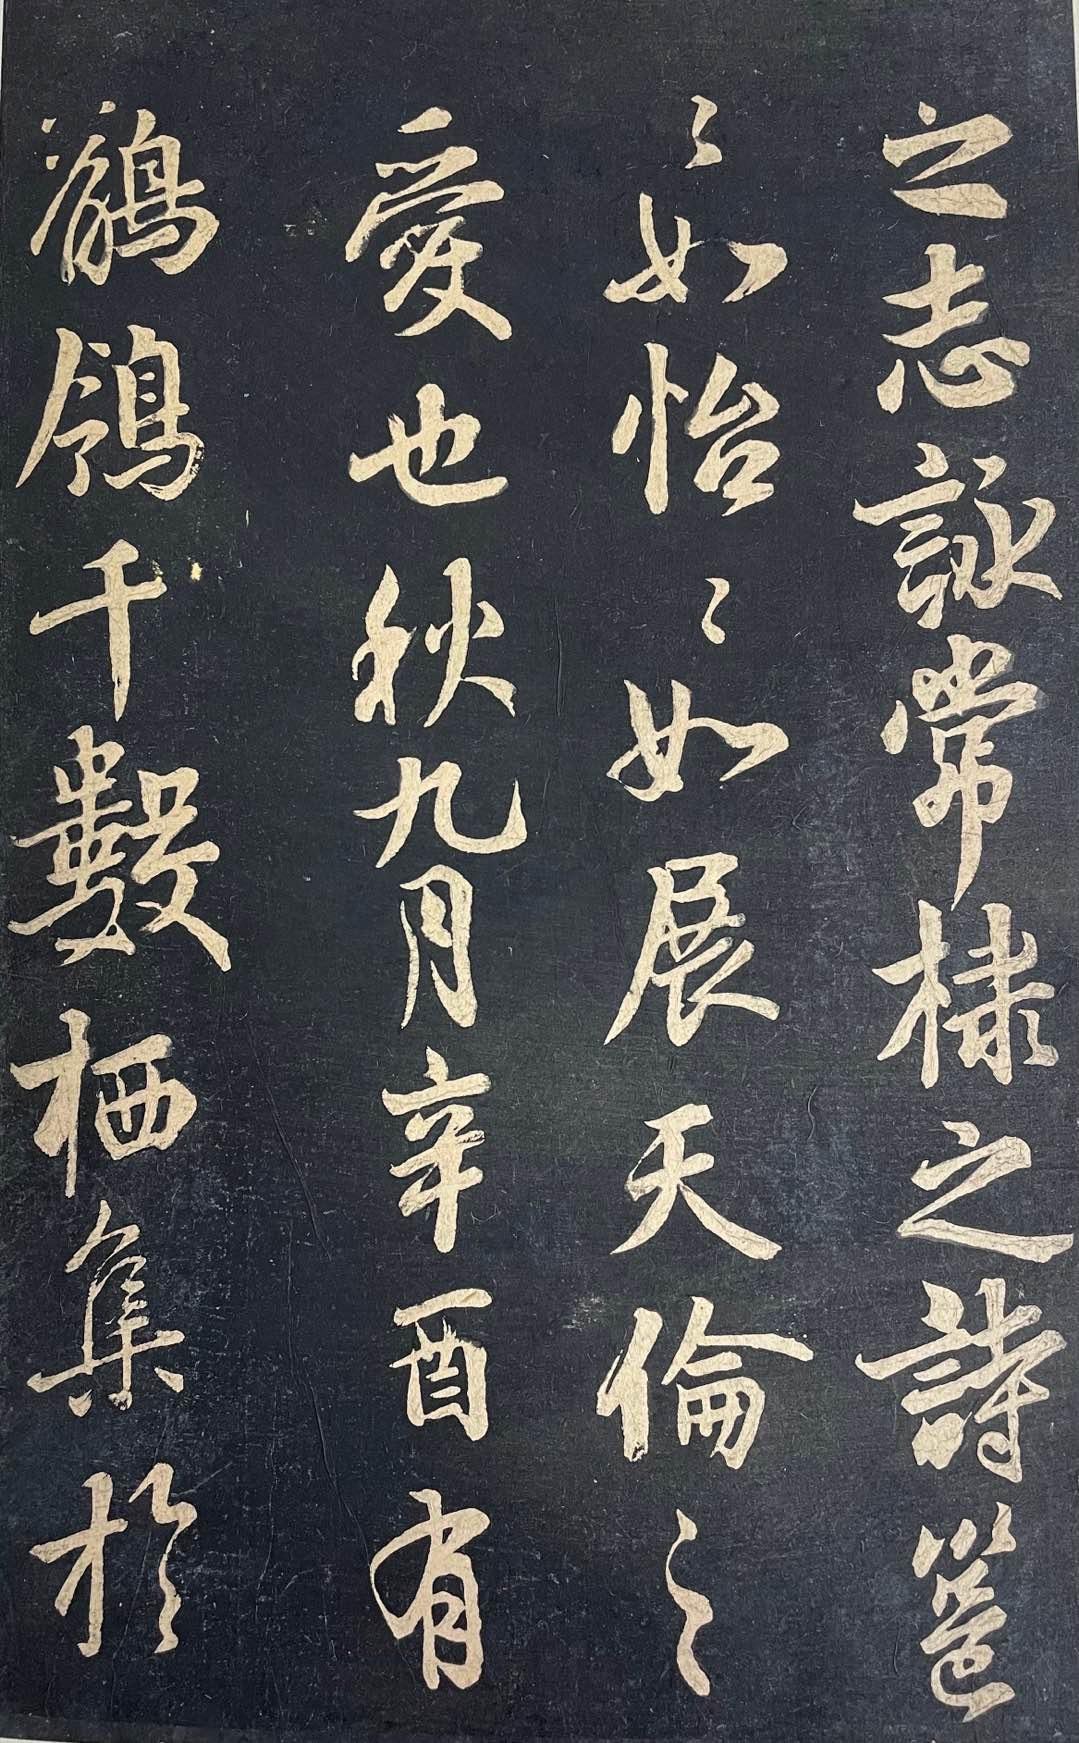 之志詠常棣之詩邕
〻如怡〻如展天倫之
愛也秋九月辛酉有
鶺鴒千數栖集於